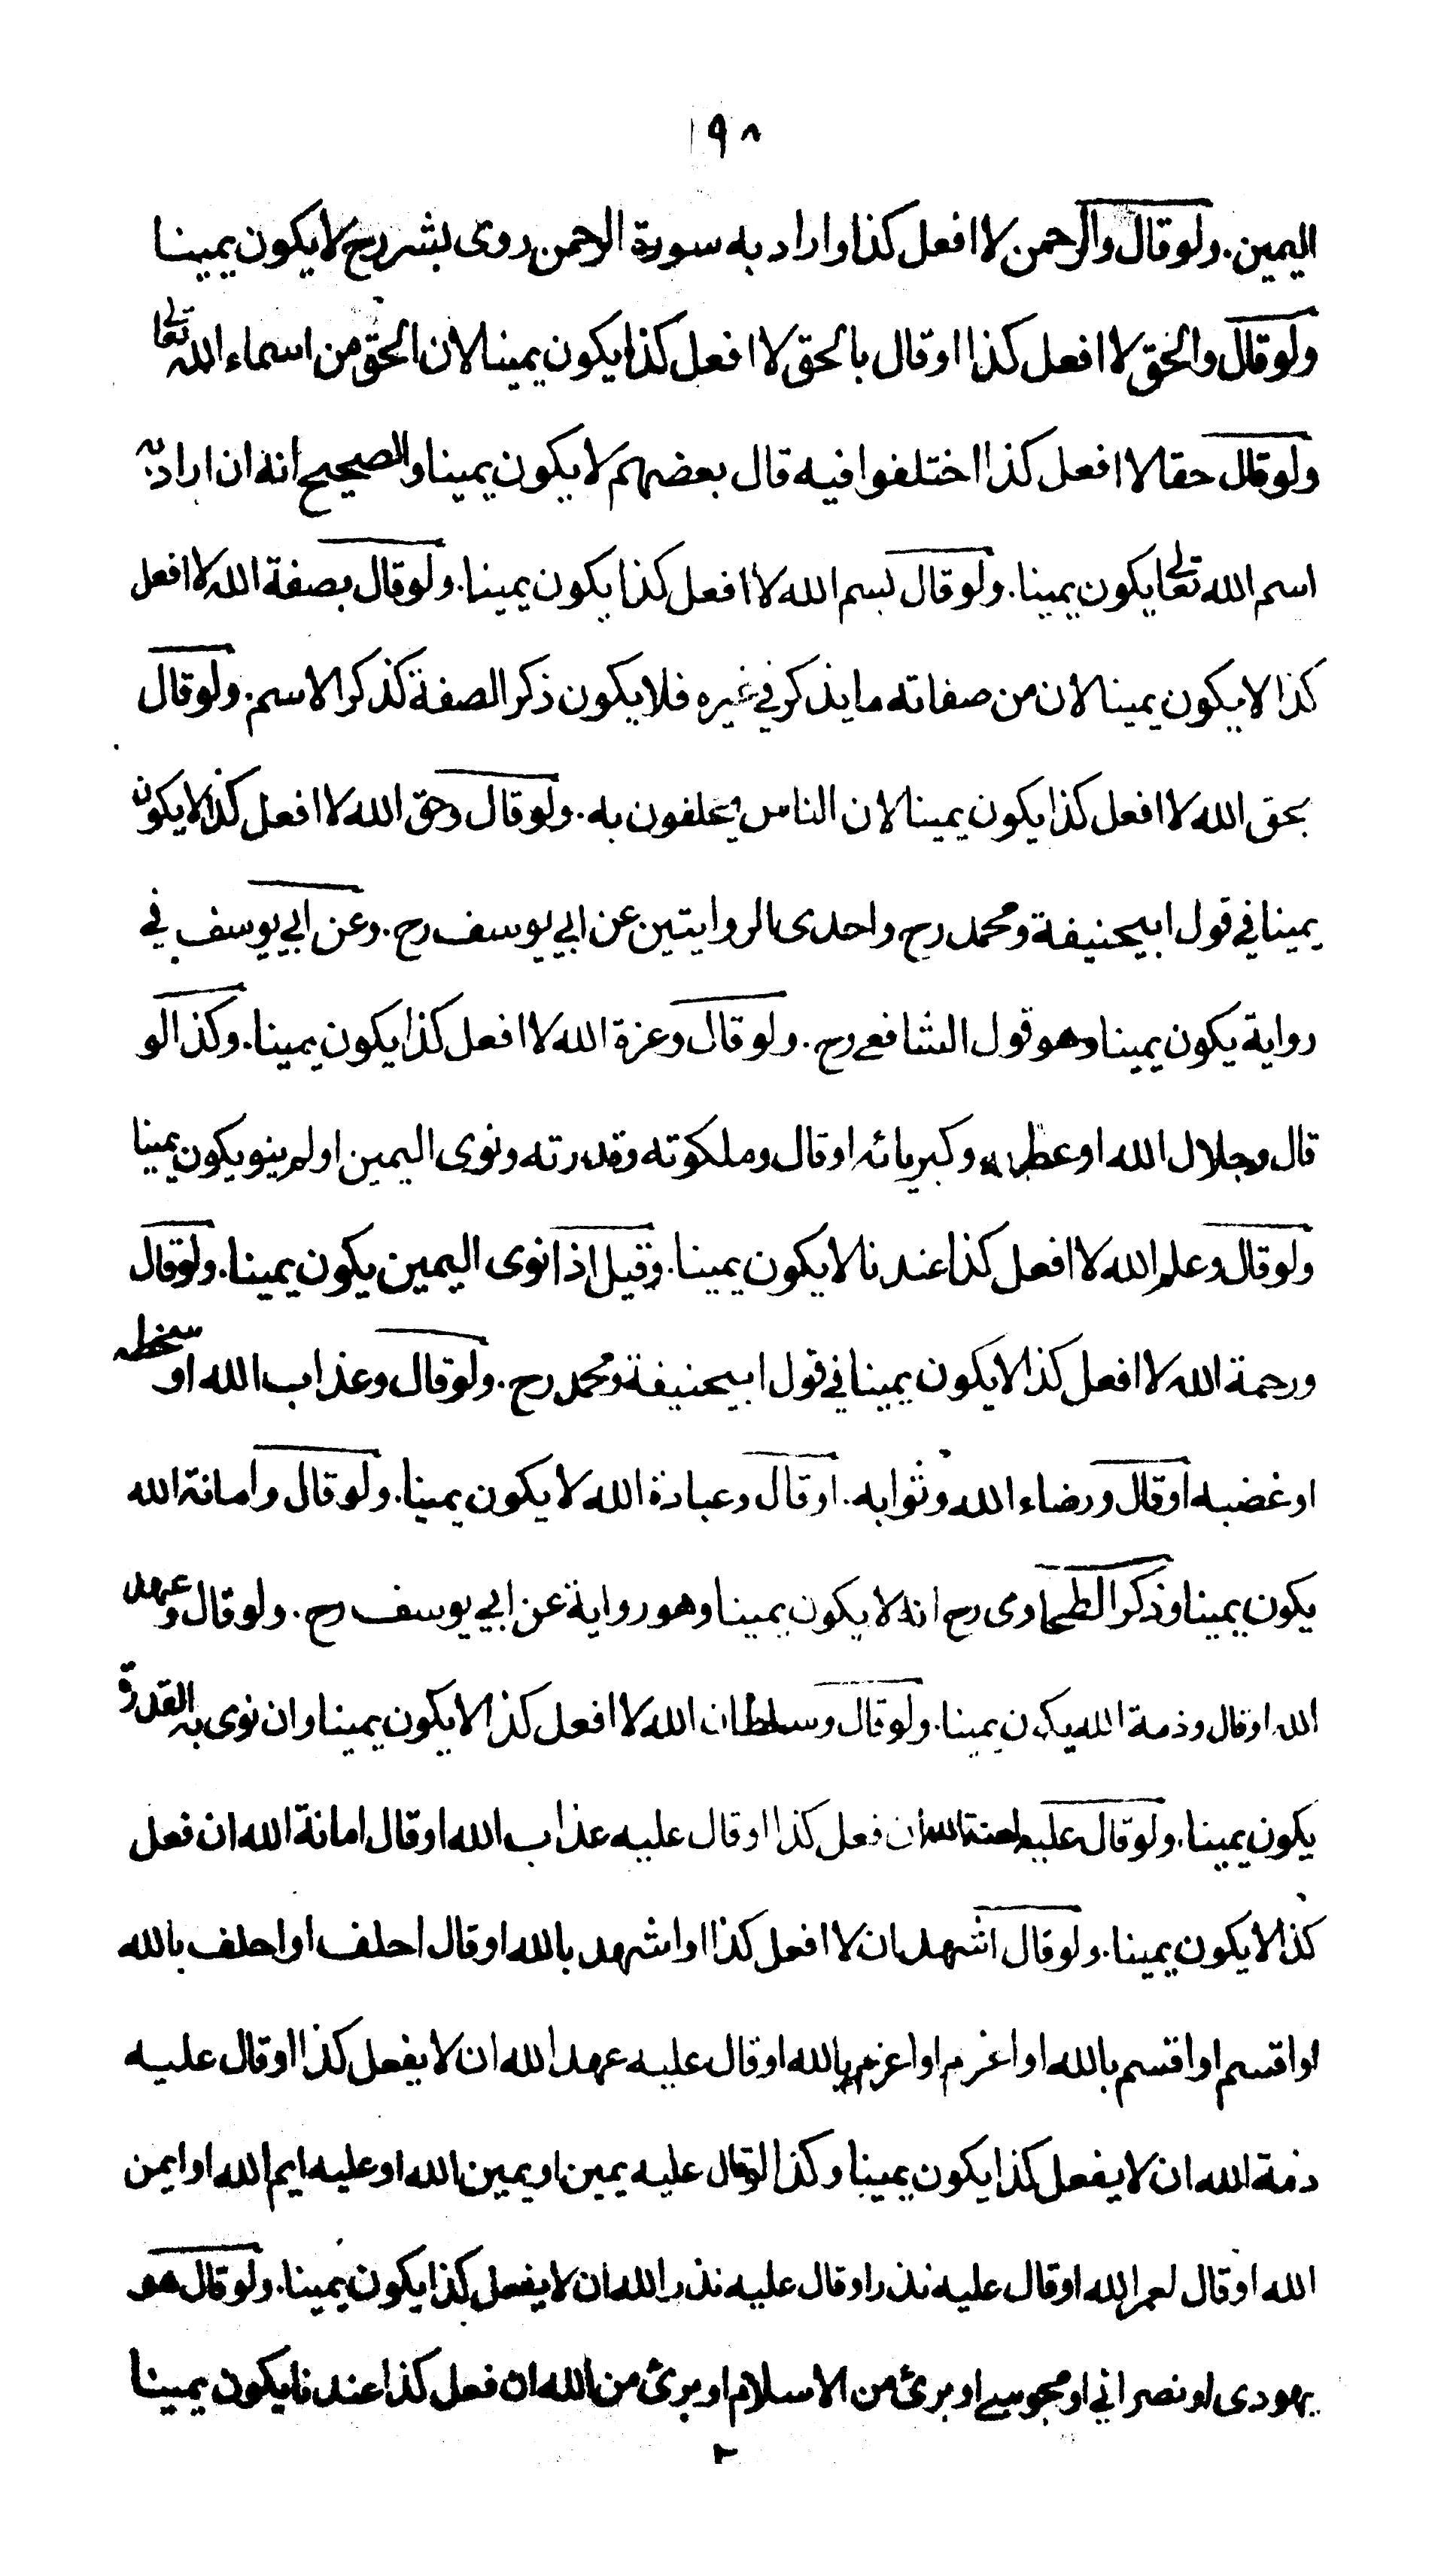 ١٩٨
اليمين. ولو قال والرحمن لا افعل كذا واراد به سورة الرحمن روى بشر رح لا يكون يمينا
ولو قال والحق لا افعل كذا او قال بالحق لا افعل كذا يكون يمينا لان الحق من اسماء الله تعالى
ولو قال حقا لا افعل كذا اختلفوا فيه قال بعضهم لا يكون يمينا والصحيح انه ان اراد به
اسم الله تعالى يكون يمينا. ولو قال بسم الله لا افعل كذا يكون يمينا. ولو قال بصفة الله لا افعل
كذا لا يكون يمينا لان من صفاته ما يذكر في غيره فلا يكون ذكر الصفة كذكر الاسم. ولو قال
بحق الله لا افعل كذا يكون يمينا لان الناس يحلفون به. ولو قال وحق الله لا افعل كذا لا يكون
يمينا في قول ابيحنيفة ومحمد رح واحدى الروايتين عن ابي يوسف رح. وعن ابي يوسف في
رواية يكون يمينا وهو قول الشافعي رح. ولو قال وعزة الله لا افعل كذا يكون يمينا. وكذا لو
قال وجلال الله او وكبريائه او قال وملكوته وقدرته ونوى اليمين او لم ينو يكون يمينا
ولو قال وعلم الله لا افعل كذا عندنا لا يكون يمينا. وقيل اذا نوى اليمين يكون يمينا. ولو قال
ورحمة الله لا افعل كذا لا يكون يمينا في قول ابيحنيفة ومحمد رح. ولو قال وعذاب الله او سخطه
او غضبه او قال ورضاء الله وثوابه. او قال وعبادة الله لا يكون يمينا. ولو قال وامانة الله
يكون يمينا وذكر الطحاوى رح انه لا يكون يمينا وهو رواية عن ابي يوسف رح. ولو قال وعهد
الله او قال وذمة الله يكون يمينا. ولو قال وسلطان الله لا افعل كذا لا يكون يمينا وان نوى به القدرة
يكون يمينا. ولو قال عليه لعنة الله ان فعل كذا او قال عليه عذاب الله او قال امانة الله ان فعل
كذا لا يكون يمينا. ولو قال اشهد ان لا افعل كذا او اشهد بالله او قال احلف او احلف بالله
او اقسم او اقسم بالله او اعزم او اعزم بالله او قال عليه عهد الله ان لا يفعل كذا او قال عليه
ذمة الله ان لا يفعل كذا يكون يمينا وكذا لو قال عليه يمين او يمين الله او عليه ايم الله او ايمن
الله او قال لعمر الله او قال عليه نذر او قال عليه نذر الله ان لا يفعل كذا يكون يمينا. ولو قال هو
يهودى او نصراني او مجوسي او برئ من الاسلام او برئ من الله ان فعل كذا عندنا يكون يمينا
٢